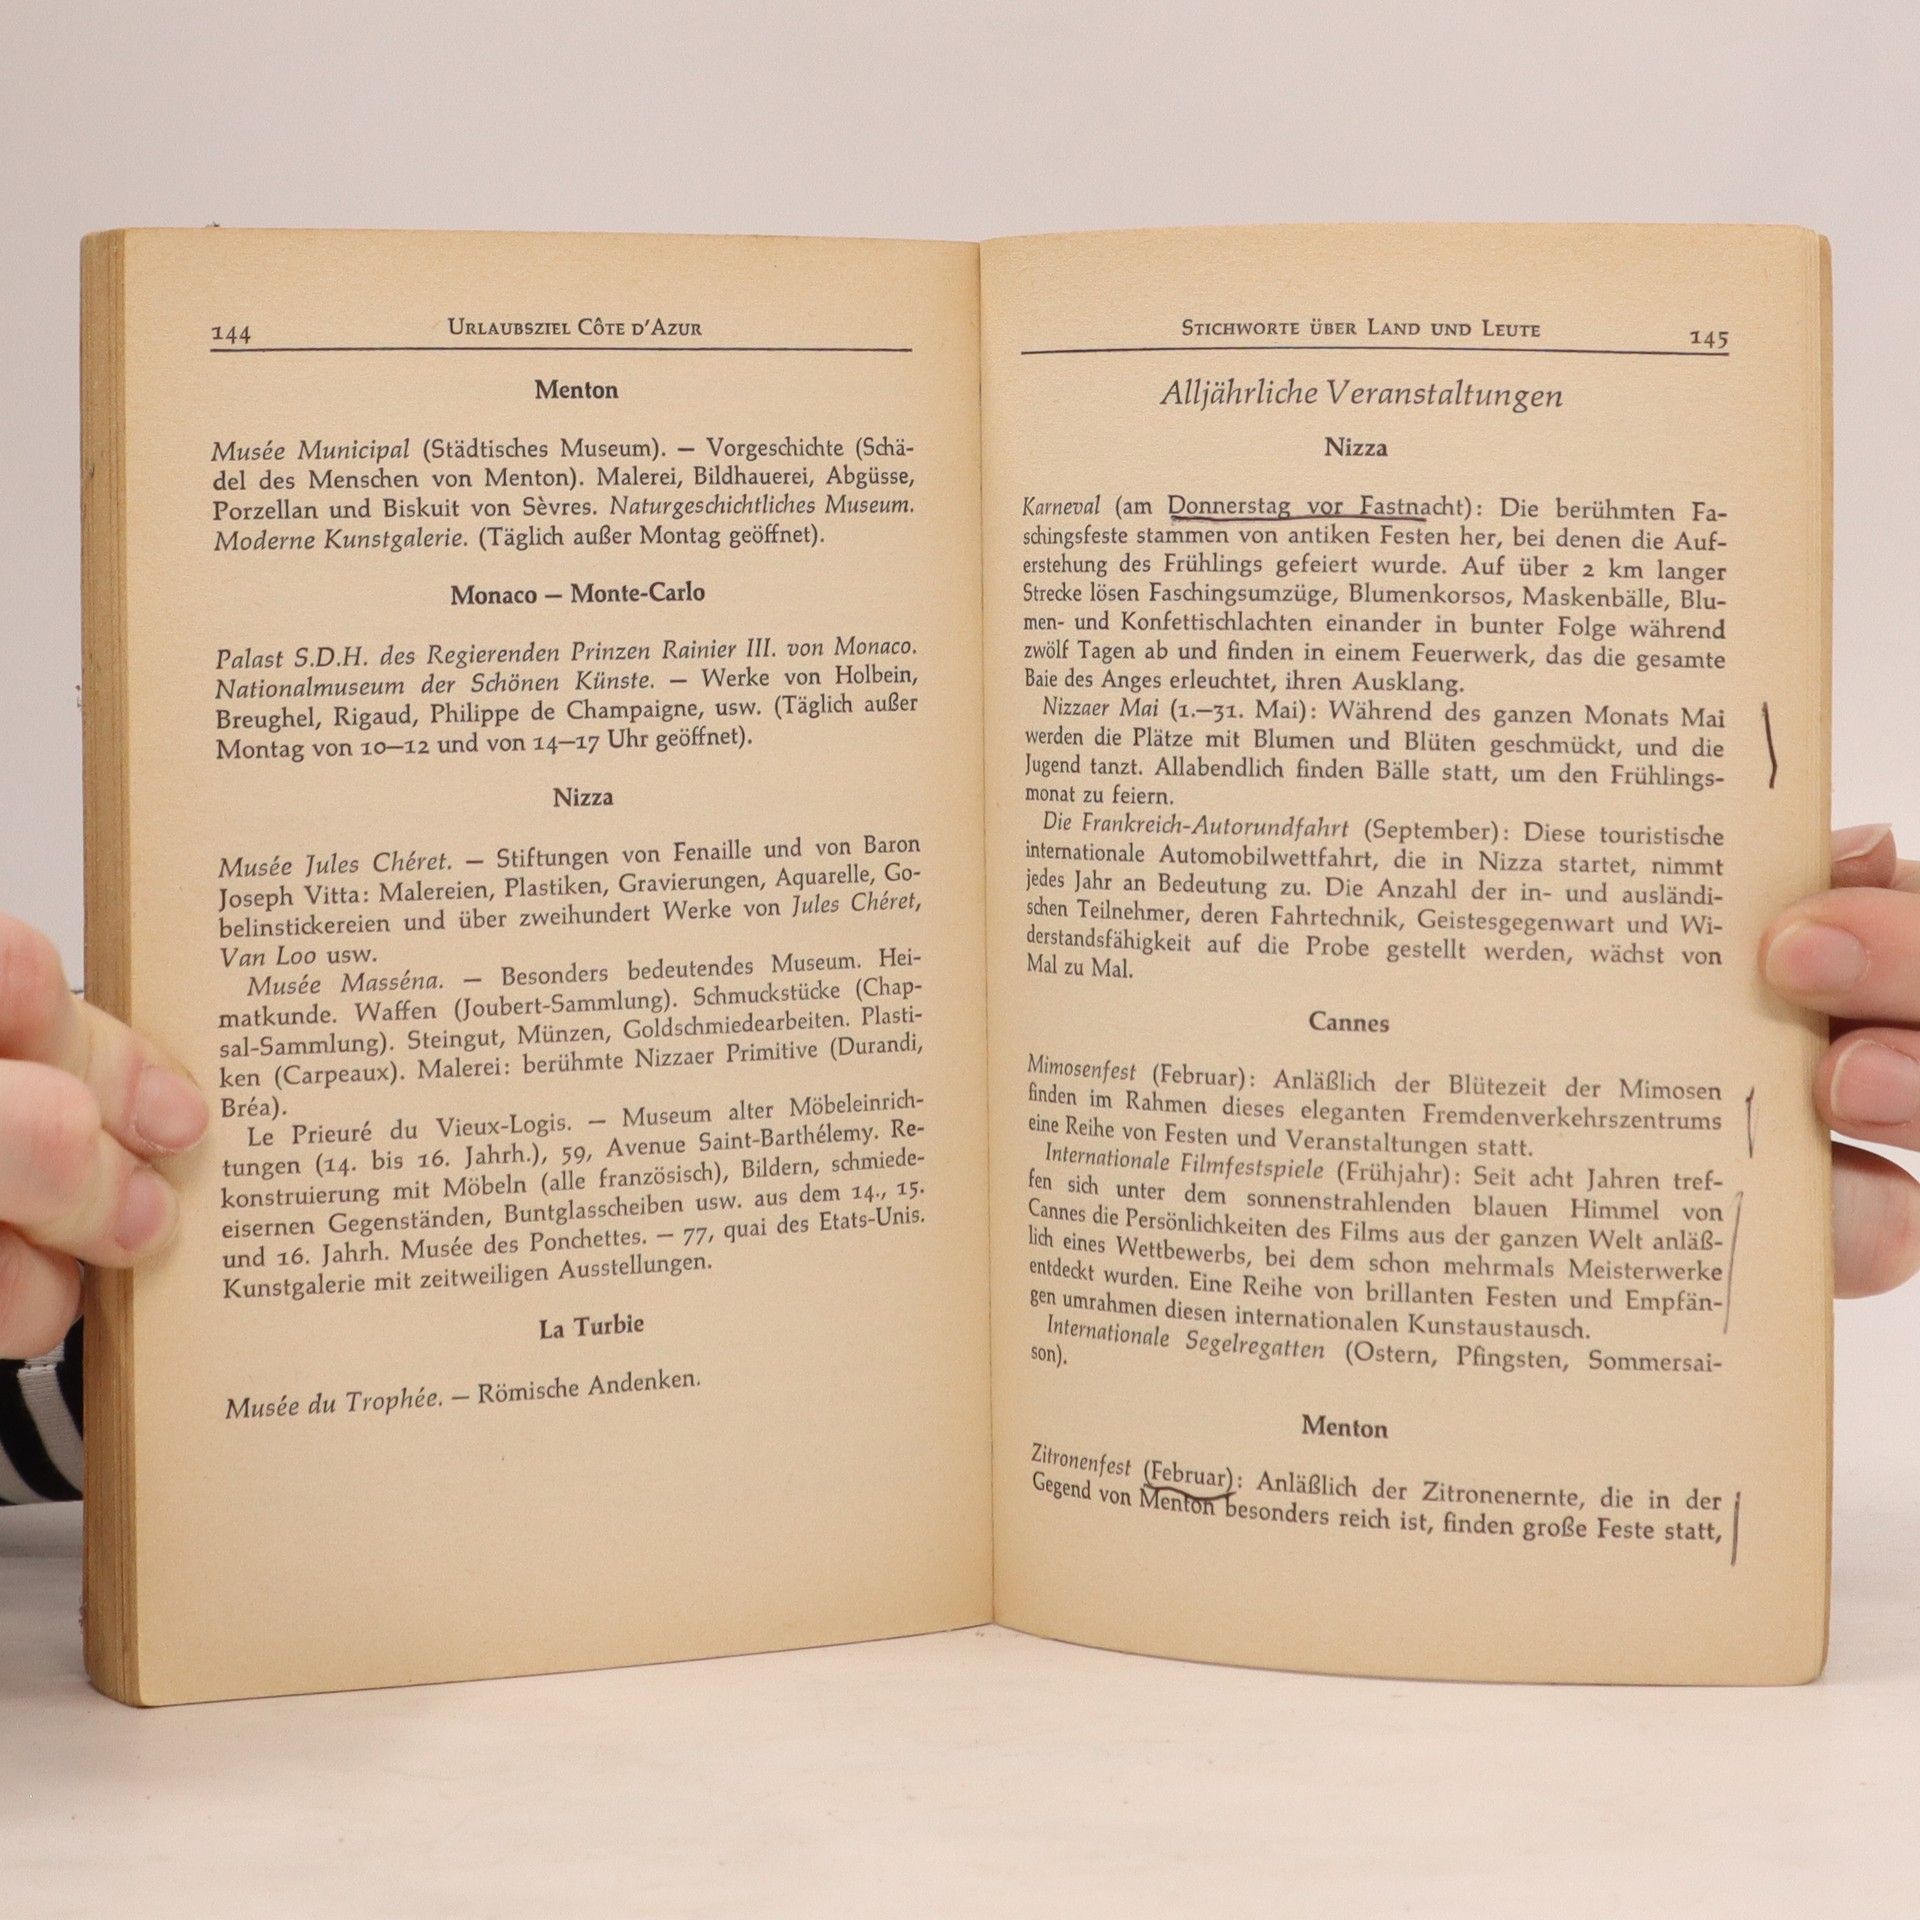 144
URLAUBSZIEL CÔTE D'AZUR
Menton
Musée Municipal (Städtisches Museum). — Vorgeschichte (Schä-
del des Menschen von Menton). Malerei, Bildhauerei, Abgüsse,
Porzellan und Biskuit von Sèvres. Naturgeschichtliches Museum.
Moderne Kunstgalerie. (Täglich außer Montag geöffnet).
Monaco — Monte-Carlo
Palast S.D.H. des Regierenden Prinzen Rainier III. von Monaco.
Nationalmuseum der Schönen Künste. — Werke von Holbein,
Breughel, Rigaud, Philippe de Champaigne, usw. (Täglich außer
Montag von 10—12 und von 14—17 Uhr geöffnet).
Nizza
Musée Jules Chéret. — Stiftungen von Fenaille und von Baron
Joseph Vitta: Malereien, Plastiken, Gravierungen, Aquarelle, Go-
belinstickereien und über zweihundert Werke von Jules Chéret,
Van Loo usw.
Musée Masséna. — Besonders bedeutendes Museum. Hei-
matkunde. Waffen (Joubert-Sammlung). Schmuckstücke (Chap-
sal-Sammlung). Steingut, Münzen, Goldschmiedearbeiten. Plasti-
ken (Carpeaux). Malerei: berühmte Nizzaer Primitive (Durandi,
Bréa).
Le Prieuré du Vieux-Logis. — Museum alter Möbeleinrich-
tungen (14. bis 16. Jahrh.), 59, Avenue Saint-Barthélemy. Re-
konstruierung mit Möbeln (alle französisch), Bildern, schmiede-
eisernen Gegenständen, Buntglasscheiben usw. aus dem 14., 15.
und 16. Jahrh. Musée des Ponchettes. — 77, quai des Etats-Unis.
Kunstgalerie mit zeitweiligen Ausstellungen.
La Turbie
Musée du Trophée. — Römische Andenken.
STICHWORTE ÜBER LAND UND LEUTE
145
Alljährliche Veranstaltungen
Nizza
Karneval (am Donnerstag vor Fastnacht): Die berühmten Fa-
schingsfeste stammen von antiken Festen her, bei denen die Auf-
erstehung des Frühlings gefeiert wurde. Auf über 2 km langer
Strecke lösen Faschingsumzüge, Blumenkorsos, Maskenbälle, Blu-
men- und Konfettischlachten einander in bunter Folge während
zwölf Tagen ab und finden in einem Feuerwerk, das die gesamte
Baie des Anges erleuchtet, ihren Ausklang.
Nizzaer Mai (1.—31. Mai): Während des ganzen Monats Mai
werden die Plätze mit Blumen und Blüten geschmückt, und die
Jugend tanzt. Allabendlich finden Bälle statt, um den Frühlings-
monat zu feiern.
Die Frankreich-Autorundfahrt (September): Diese touristische
internationale Automobilwettfahrt, die in Nizza startet, nimmt
jedes Jahr an Bedeutung zu. Die Anzahl der in- und ausländi-
schen Teilnehmer, deren Fahrtechnik, Geistesgegenwart und Wi-
derstandsfähigkeit auf die Probe gestellt werden, wächst von
Mal zu Mal.
Cannes
Mimosenfest (Februar): Anläßlich der Blütezeit der Mimosen
finden im Rahmen dieses eleganten Fremdenverkehrszentrums
eine Reihe von Festen und Veranstaltungen statt.
Internationale Filmfestspiele (Frühjahr): Seit acht Jahren tref-
fen sich unter dem sonnenstrahlenden blauen Himmel von
Cannes die Persönlichkeiten des Films aus der ganzen Welt anläß-
lich eines Wettbewerbs, bei dem schon mehrmals Meisterwerke
entdeckt wurden. Eine Reihe von brillanten Festen und Empfän-
gen umrahmen diesen internationalen Kunstaustausch.
Internationale Segelregatten (Ostern, Pfingsten, Sommersai-
son).
Menton
Zitronenfest (Februar): Anläßlich der Zitronenernte, die in der
Gegend von Menton besonders reich ist, finden große Feste statt,